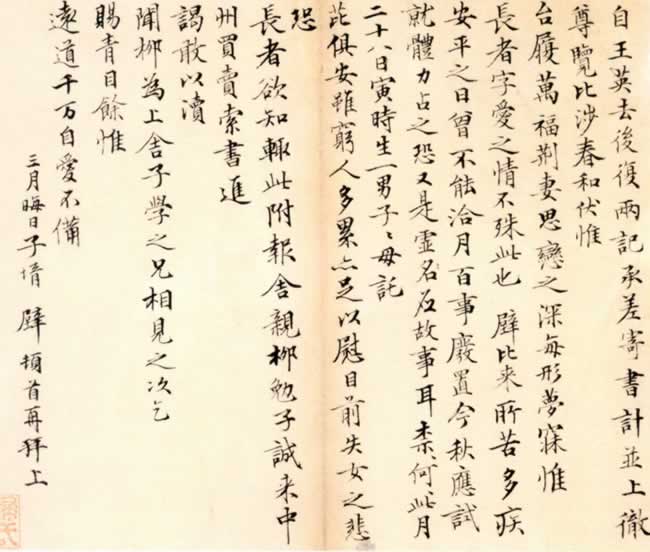 自王英去後復兩記承差寄書計並上徹
尊覽比涉春和伏惟
台履萬福荆妻思戀之深每形夢寐惟
長者字愛之情不殊此也壁比来所苦多疾
安平之日曾不能洽月百事廢置今秋應試
就體力占之恐又是虛名石故事耳柰何此月
二十八日寅時生一男子〻母託
芘俱安雖窮人多累亦足以慰目前失女之悲
恐
長者欲知輒此附報舍親柳勉子誠来中
州買賣索書進
謁敢以瀆
聞柳為上舍子學之兄相見之次乞
賜青目餘惟
遠道千万自愛不備
三月晦日子壻 壁 頓首再拜上